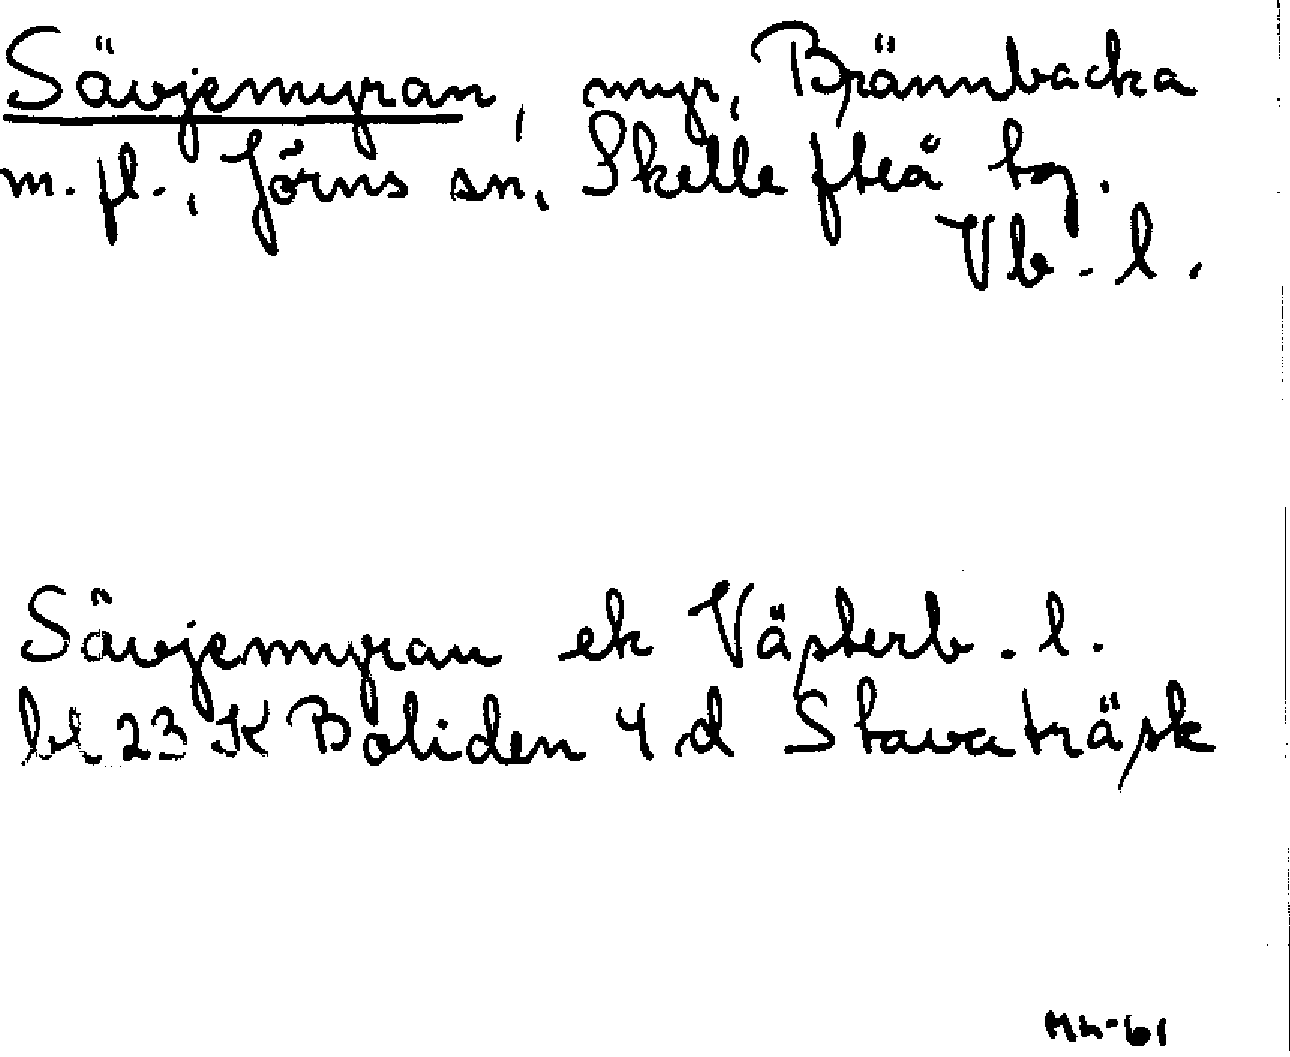 Sävjemyran, myr, Brännbacka
m. fl., Jörns sn, Skellefteå tg.
Vb. l.
Sävjemyran ek Västerb. l.
bl 23 K Boliden 4 d Stavaträsk